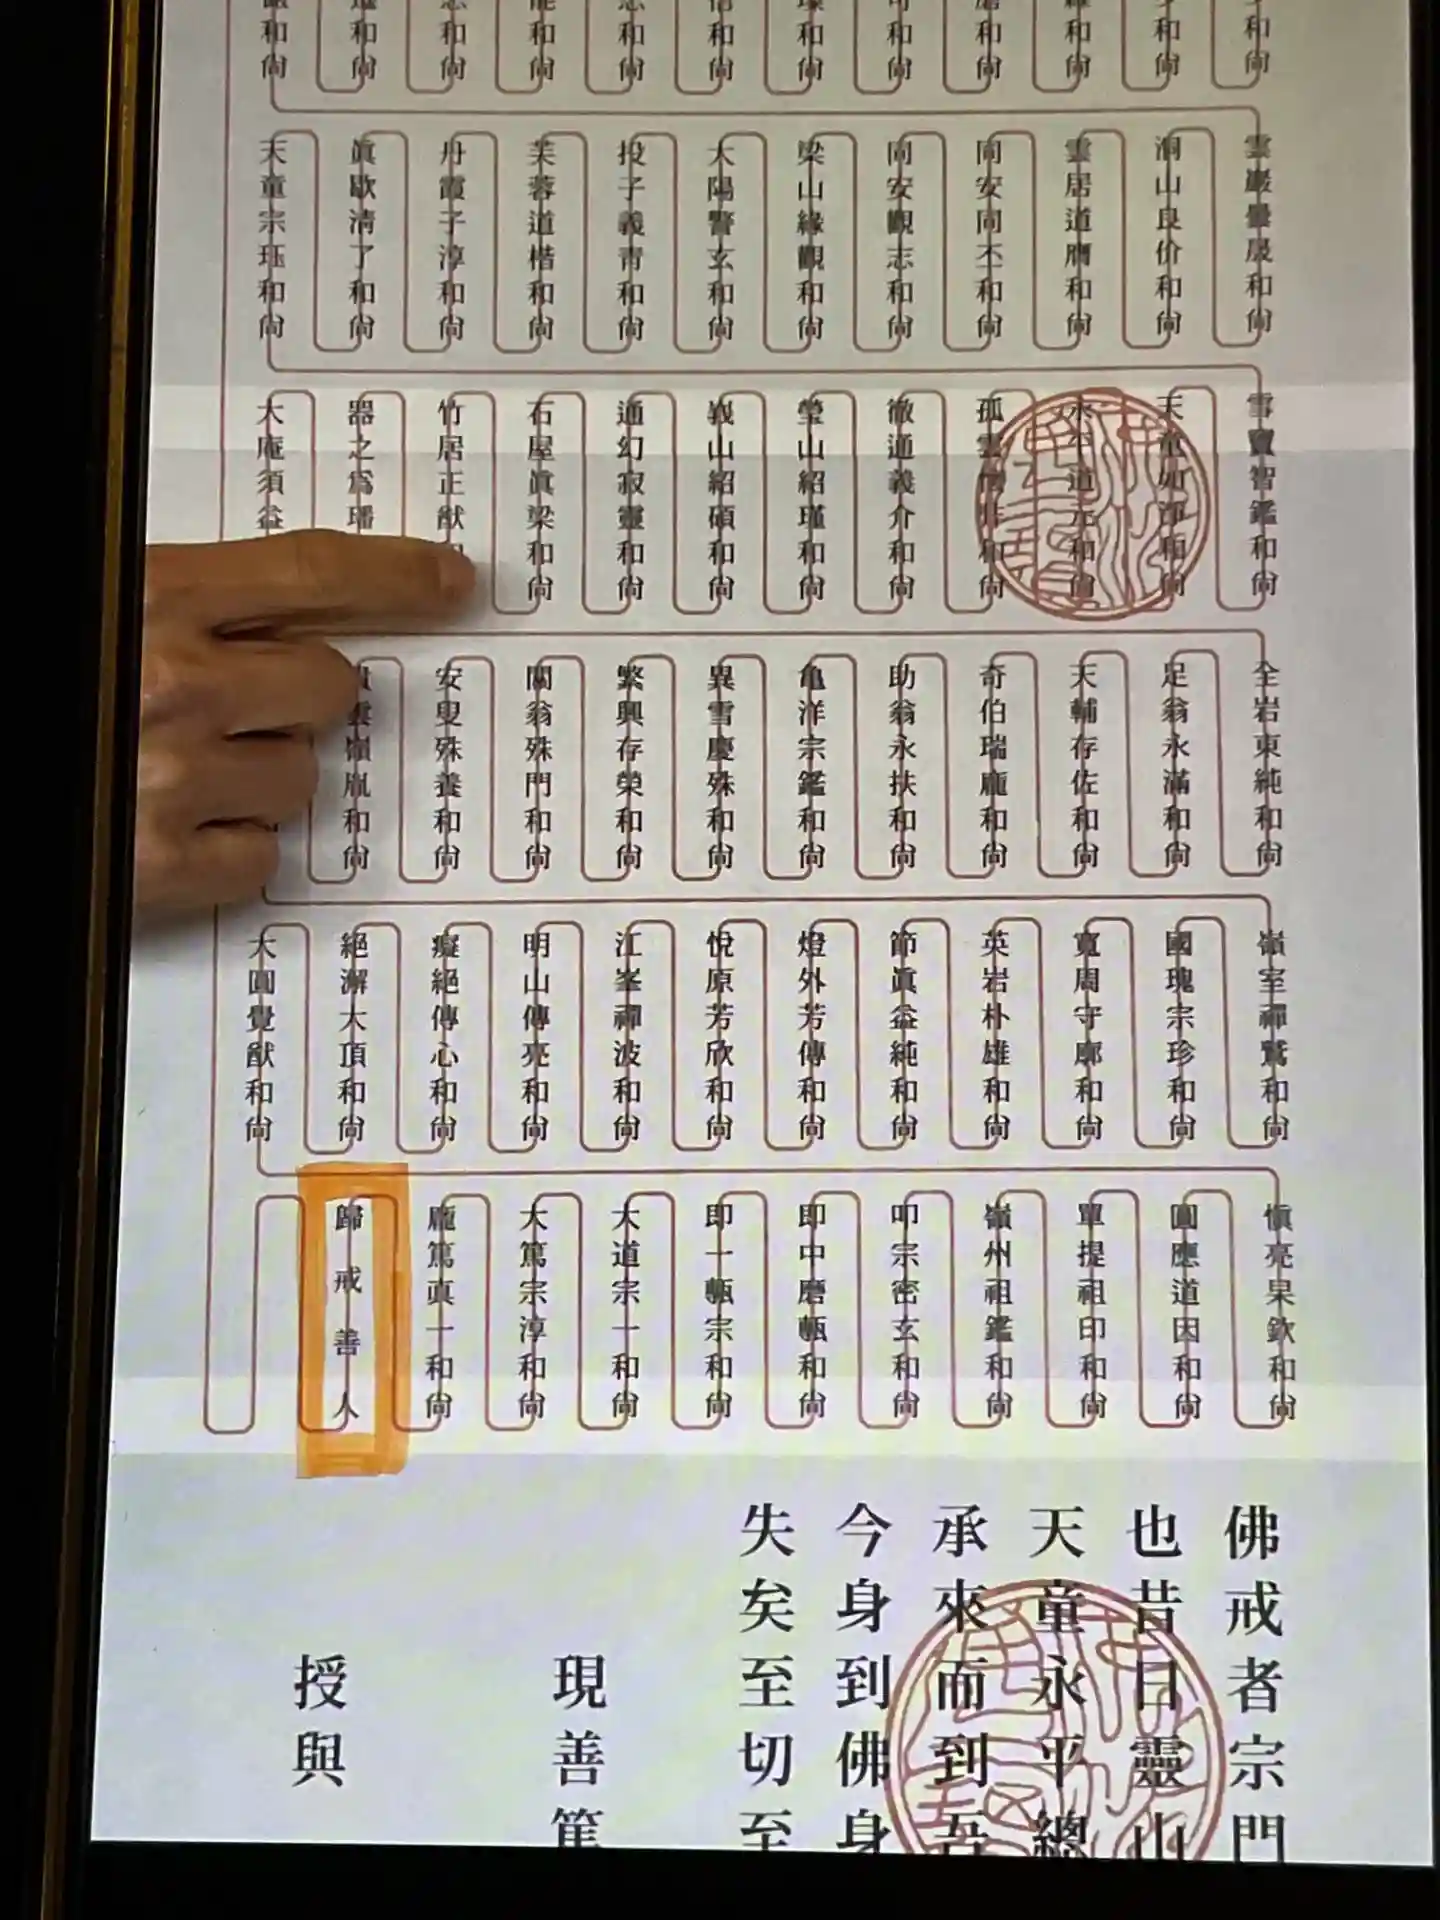 雲巖曇晟和尚
洞山良价和尚
雲居道膺和尚
同安同丕和尚
同安觀志和尚
梁山緣觀和尚
大陽警玄和尚
投子義青和尚
芙蓉道楷和尚
丹霞子淳和尚
眞歇淸了和尚
天童宗珏和尚
雪竇智鑑和尚
天童如淨和尚
永平道元和尚
孤雲懷弉和尚
徹通義介和尚
瑩山紹瑾和尚
峩山紹碩和尚
通幻寂靈和尚
石屋眞梁和尚
竹居正猷和
器之爲璠
大庵須益
全岩東純和尚
足翁永滿和尚
天輔存佐和尚
奇伯瑞龐和尚
助翁永扶和尚
亀洋宗鑑和尚
異雪慶殊和尚
繁興存榮和尚
關翁殊門和尚
安叟殊養和尚
雲嶺胤和尚
嶺室禪鷲和尚
國瑰宗珍和尚
寬周守廓和尚
英岩朴雄和尚
節眞益純和尚
燈外芳傳和尚
悅原芳欣和尚
江峯禪波和尚
明山傳亮和尚
癡絕傳心和尚
絕澥大頂和尚
大圓覺猷和尚
愼亮杲欽和尚
圓應道因和尚
單提祖印和尚
嶺州祖鑑和尚
叩宗密玄和尚
即中磨甎和尚
即一甎宗和尚
大道宗一和尚
大篤宗淳和尚
龐篤真一和尚
歸戒善人
佛戒者宗門
也昔日靈山
天童永平總
承來而到吾
今身到佛身
失矣至切至
現善篤
授與